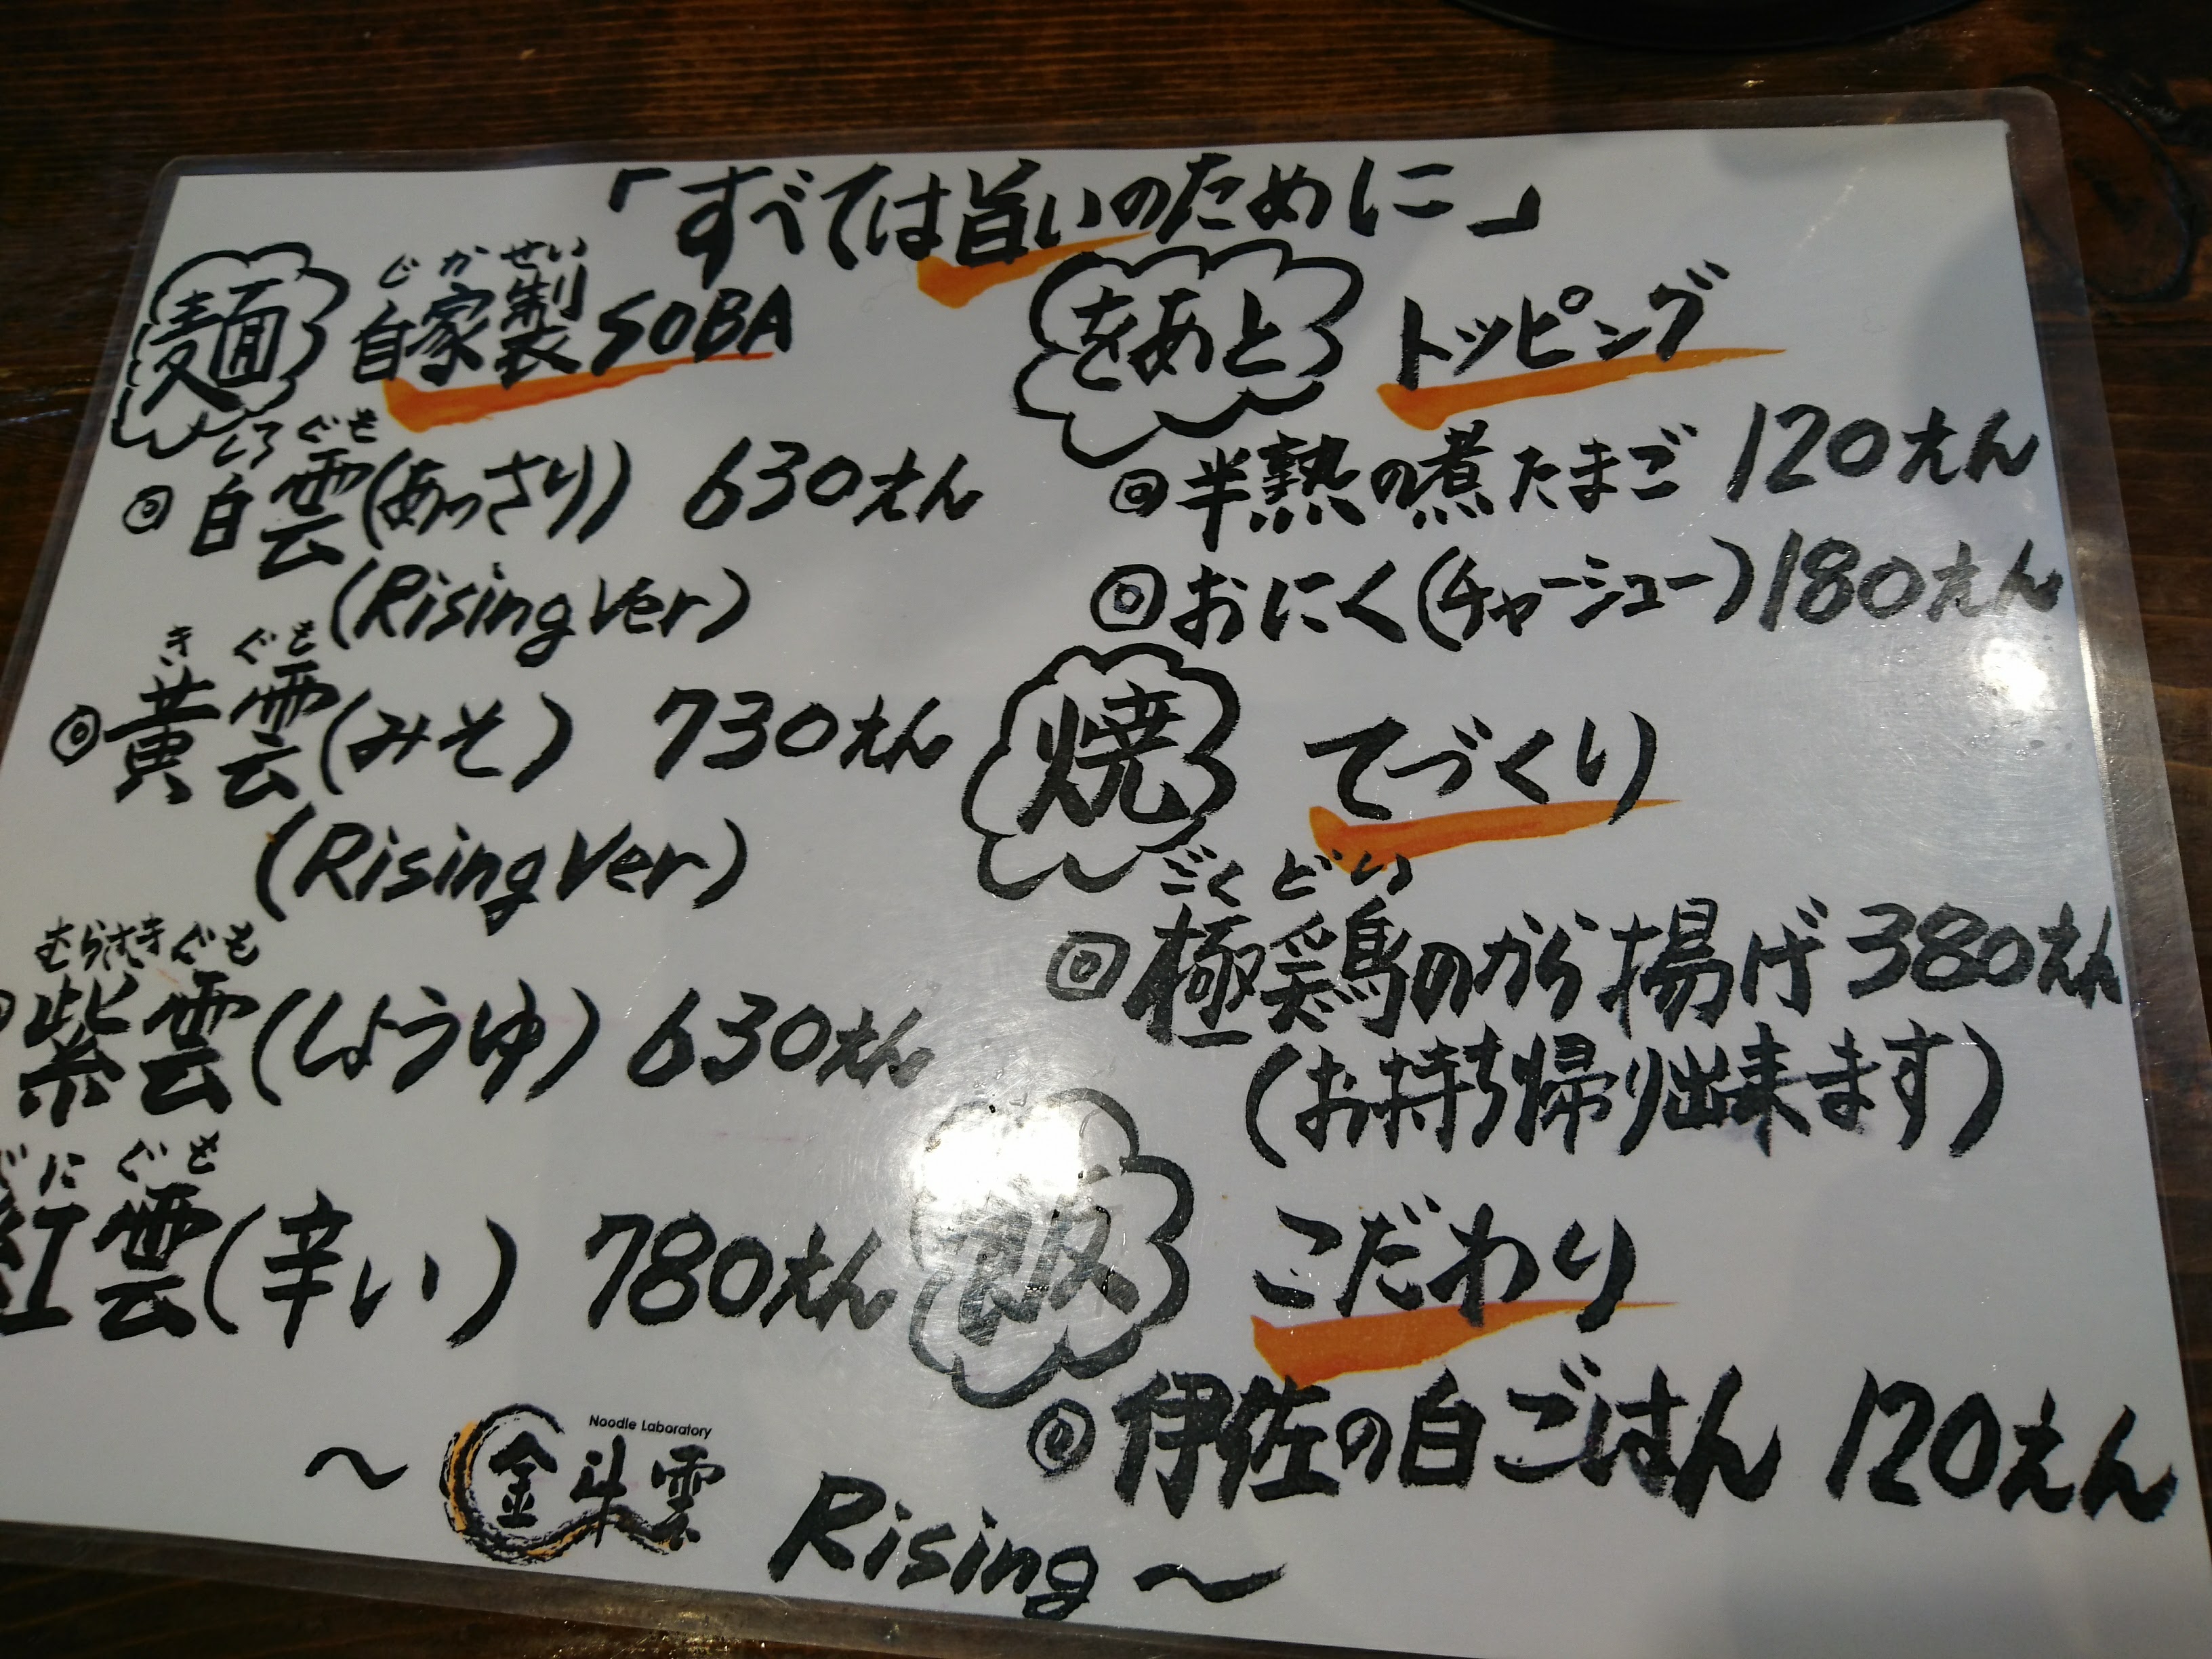 「すべては旨いのために」
麺 じかせい
自家製SOBA
しろぐも
◎白雲(あっさり) 630えん
(Rising Ver)
きぐも
◎黄雲(みそ) 730えん
(Rising Ver)
むらさきぐも
◎紫雲(しょうゆ) 630えん
べにぐも
紅雲(辛い) 780えん
をあと トッピング
◎半熟の煮たまご 120えん
◎おにく(チャーシュー) 180えん
焼 てづくり
ごくどり
◎極鶏のから揚げ 380えん
(お持ち帰り出来ます)
飯 こだわり
◎伊佐の白ごはん 120えん
Noodle Laboratory
～金斗雲 Rising～